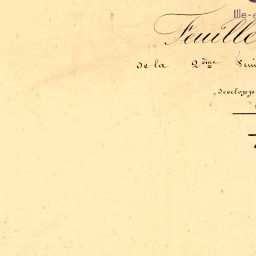 Ille-e
Feuille
de la 2ème Feui
développ